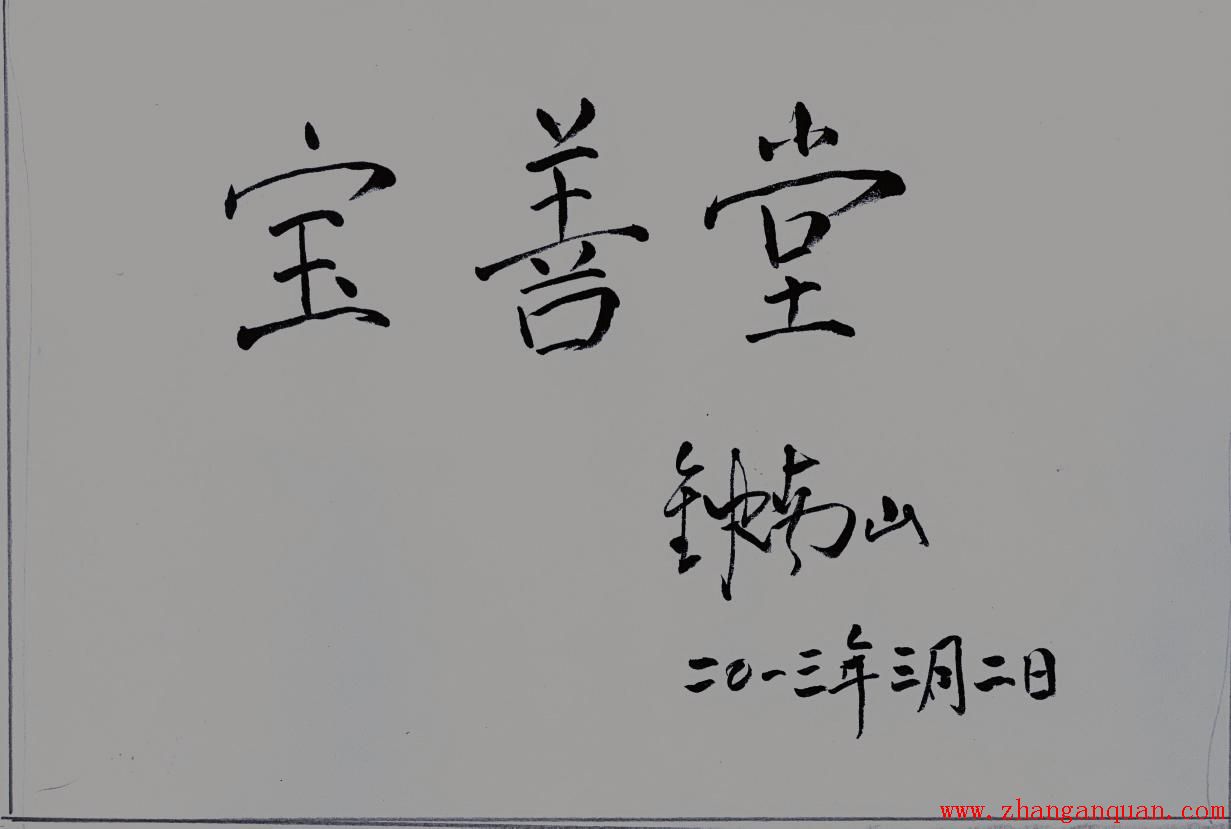 宝善堂
钟南山
二〇一三年三月二日
www.zhanganquan.com